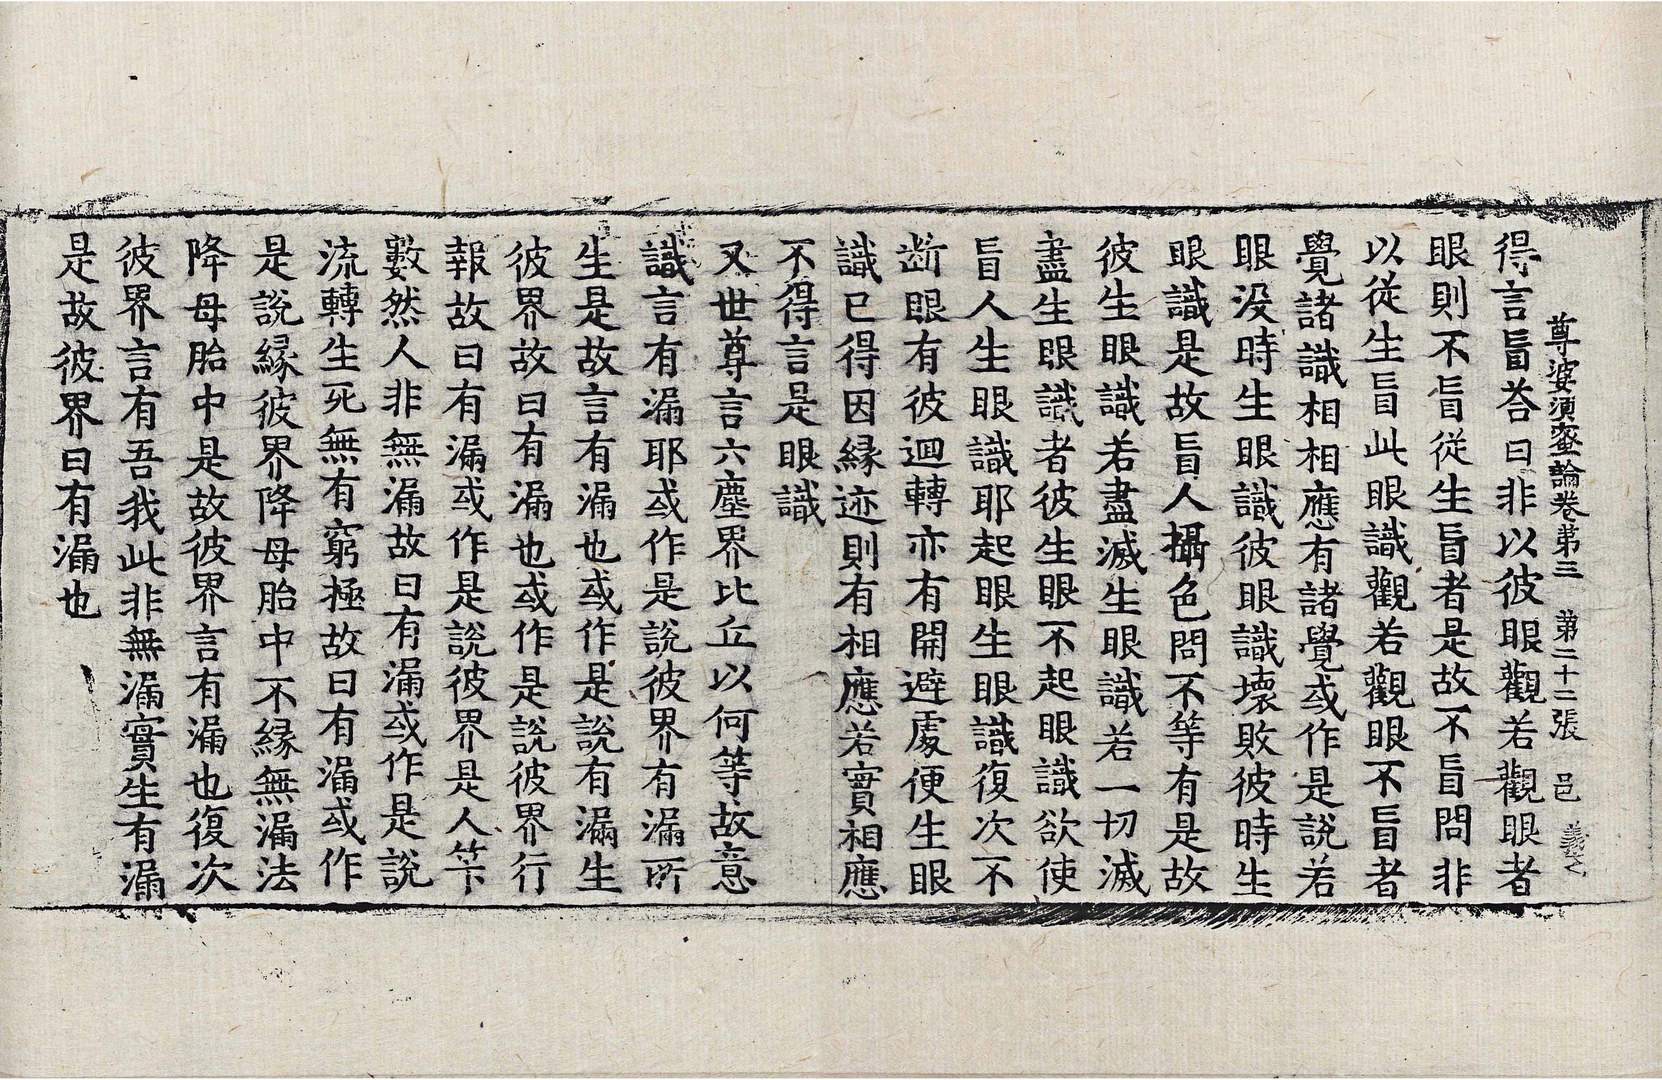 尊婆湏蜜論卷苐三　苐二十二張　邑
得言盲荅曰非以彼眼觀若觀眼者
眼則不盲從生盲者是故不盲問非
以從生盲此眼識觀若觀眼不盲者
覺諸識相相應有諸覺或作是說若
眼没時生眼識彼眼識壞敗彼時生
眼識是故盲人攝色問不等有是故
彼生眼識若盡滅生眼識若一切滅
盡生眼識者彼生眼不起眼識欲使
盲人生眼識耶起眼生眼識復次不
断眼有彼迴轉亦有開避處便生眼
識已得因縁迹則有相應若實相應
不得言是眼識
又世尊言六塵界比丘以何等故意
識言有漏耶或作是說彼界有漏所
生是故言有漏也或作是說有漏生
彼界故曰有漏也或作是說彼界行
報故曰有漏或作是說彼界是人笇
數然人非無漏故曰有漏或作是說
流轉生死無有窮極故曰有漏或作
是說縁彼界降母胎中不縁無漏法
降母胎中是故彼界言有漏也復次
彼界言有吾我此非無漏實生有漏
是故彼界曰有漏也